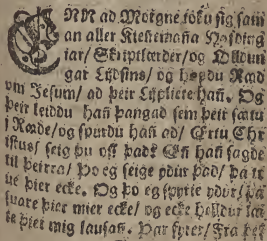 ENN ad Morgne töku sig sam
an aller Kiesiemaña Høfding
iar/ Skriptlærder/ ogØlldun
gar Lijdsins/ og høpdu Ræd
vm Jesum/ ad þeir Lijpliete hañ. Og
þeir leiddu hañ þangad sem þeir sætu
j Ræde/ og spurdu hañ ad/ Ertu Chr
istus/ seig þu oss þad? En hañ sagde
til þeirra/ Þo eg seige ydur þad/ þa tr
ue þier ecke. Og þo eg spyrie ydur/ þa
suare þier mier ecke/ og ecke helldur lä
te þier mig lausañ. Þar fyrer/ Fra þes